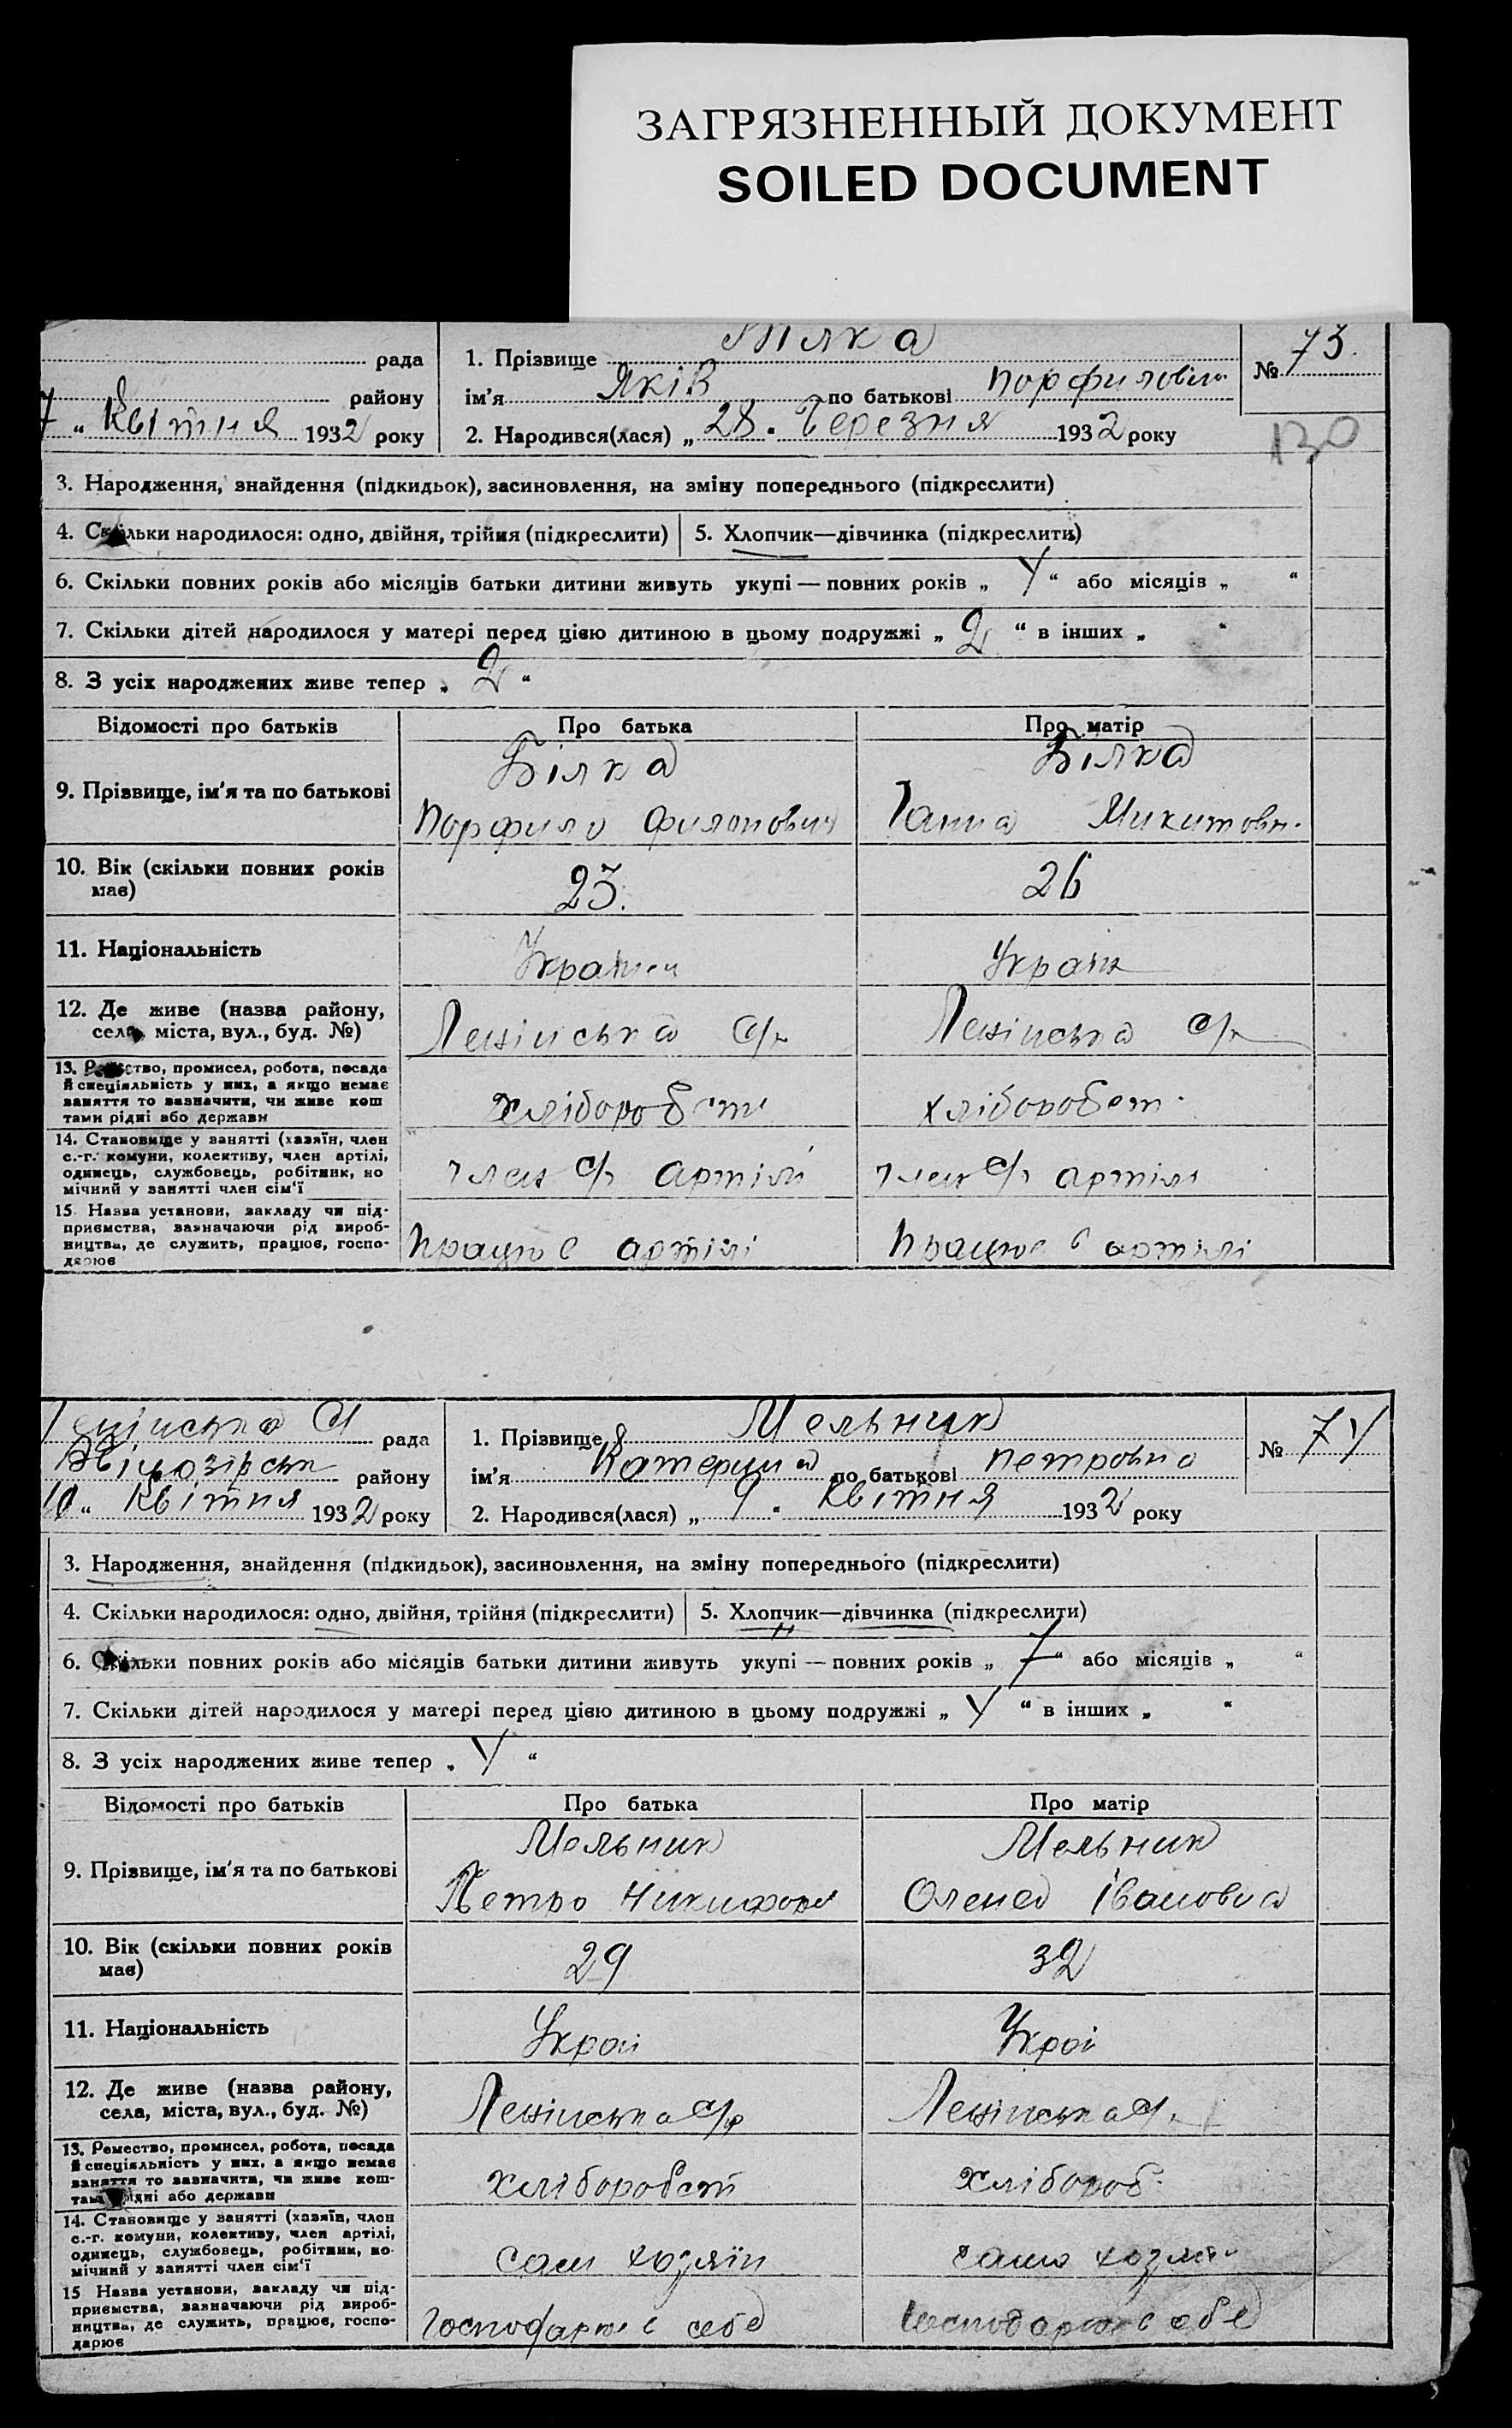 ЗАГРЯЗНЕННЫЙ ДОКУМЕНТ
SOILED DOCUMENT
рада
1. Прізвище Білка
№ 73.
району
ім'я Яків по батькові Порфилович
7 " Квітня 1932 року
2. Народився(лася) „ 28 " Березня 1932 року
130
3. Народження, знайдення (підкидьок), засиновлення, на зміну попереднього (підкреслити)
4. Скільки народилося: одно, двійня, трійня (підкреслити)
5. Хлопчик—дівчинка (підкреслити)
6. Скільки повних років або місяців батьки дитини живуть укупі — повних років „ 4 “ або місяців „ “
7. Скільки дітей народилося у матері перед цією дитиною в цьому подружжі „ 2 “ в інших „ “
8. З усіх народжених живе тепер „ 2 “
Відомості про батьків
Про батька
Про матір
9. Прізвище, ім'я та по батькові
Білка
Порфило Филонович
Білка
Ганна Микитовн.
10. Вік (скільки повних років має)
23.
26
11. Національність
Українец
Україн
12. Де живе (назва району, села, міста, вул., буд. №)
Ленінська с/р
Ленінська с/р
13. Ремество, промисел, робота, посада
й спеціяльність у них, а якщо немає
заняття то зазначити, чи живе кош
тами рідні або держави
хліборобст
хліборобст.
14. Становище у занятті (хазяїн, член
с.-г. комуни, колективу, член артілі,
одинець, службовець, робітник, по
мічний у занятті член сім'ї
член с/г артілі
член с/г артілі
15 Назва установи, закладу чи під-
приємства, зазначаючи рід вироб-
ництва, де служить, працює, госпо-
дарює
працює в артілі
працює в артілі
Ленінська С рада
1. Прізвище Мельник
№ 74
району
ім'я Катерина по батькові Петровна
10 “ Квітня 1932 року
2. Народився(лася) „ 9 " Квітня 1932 року
3. Народження, знайдення (підкидьок), засиновлення, на зміну попереднього (підкреслити)
4. Скільки народилося: одно, двійня, трійня (підкреслити)
5. Хлопчик—дівчинка (підкреслити)
6. Скільки повних років або місяців батьки дитини живуть укупі — повних років „ 7 “ або місяців „ “
7. Скільки дітей народилося у матері перед цією дитиною в цьому подружжі „ 4 “ в інших „ “
8. З усіх народжених живе тепер „ 4 “
Відомості про батьків
Про батька
Про матір
9. Прізвище, ім'я та по батькові
Мельник
Петро Никифоров
Мельник
Олена Івановна
10. Вік (скільки повних років має)
29
32
11. Національність
Украї
Украї
12. Де живе (назва району, села, міста, вул., буд. №)
Ленінська с/р
Ленінська с/р
13. Ремество, промисел, робота, посада
й спеціяльність у них, а якщо немає
заняття то зазначити, чи живе кош-
тами рідні або держави
хліборобст
хлібороб.
14. Становище у занятті (хазяїн, член
с.-г. комуни, колективу, член артілі,
одинець, службовець, робітник, по-
мічний у занятті член сім'ї
сам хозяїн
сама хозяїн
15 Назва установи, закладу чи під-
приємства, зазначаючи рід вироб-
ництва, де служить, працює, госпо-
дарює
Господарює в себе
Господарює в себе